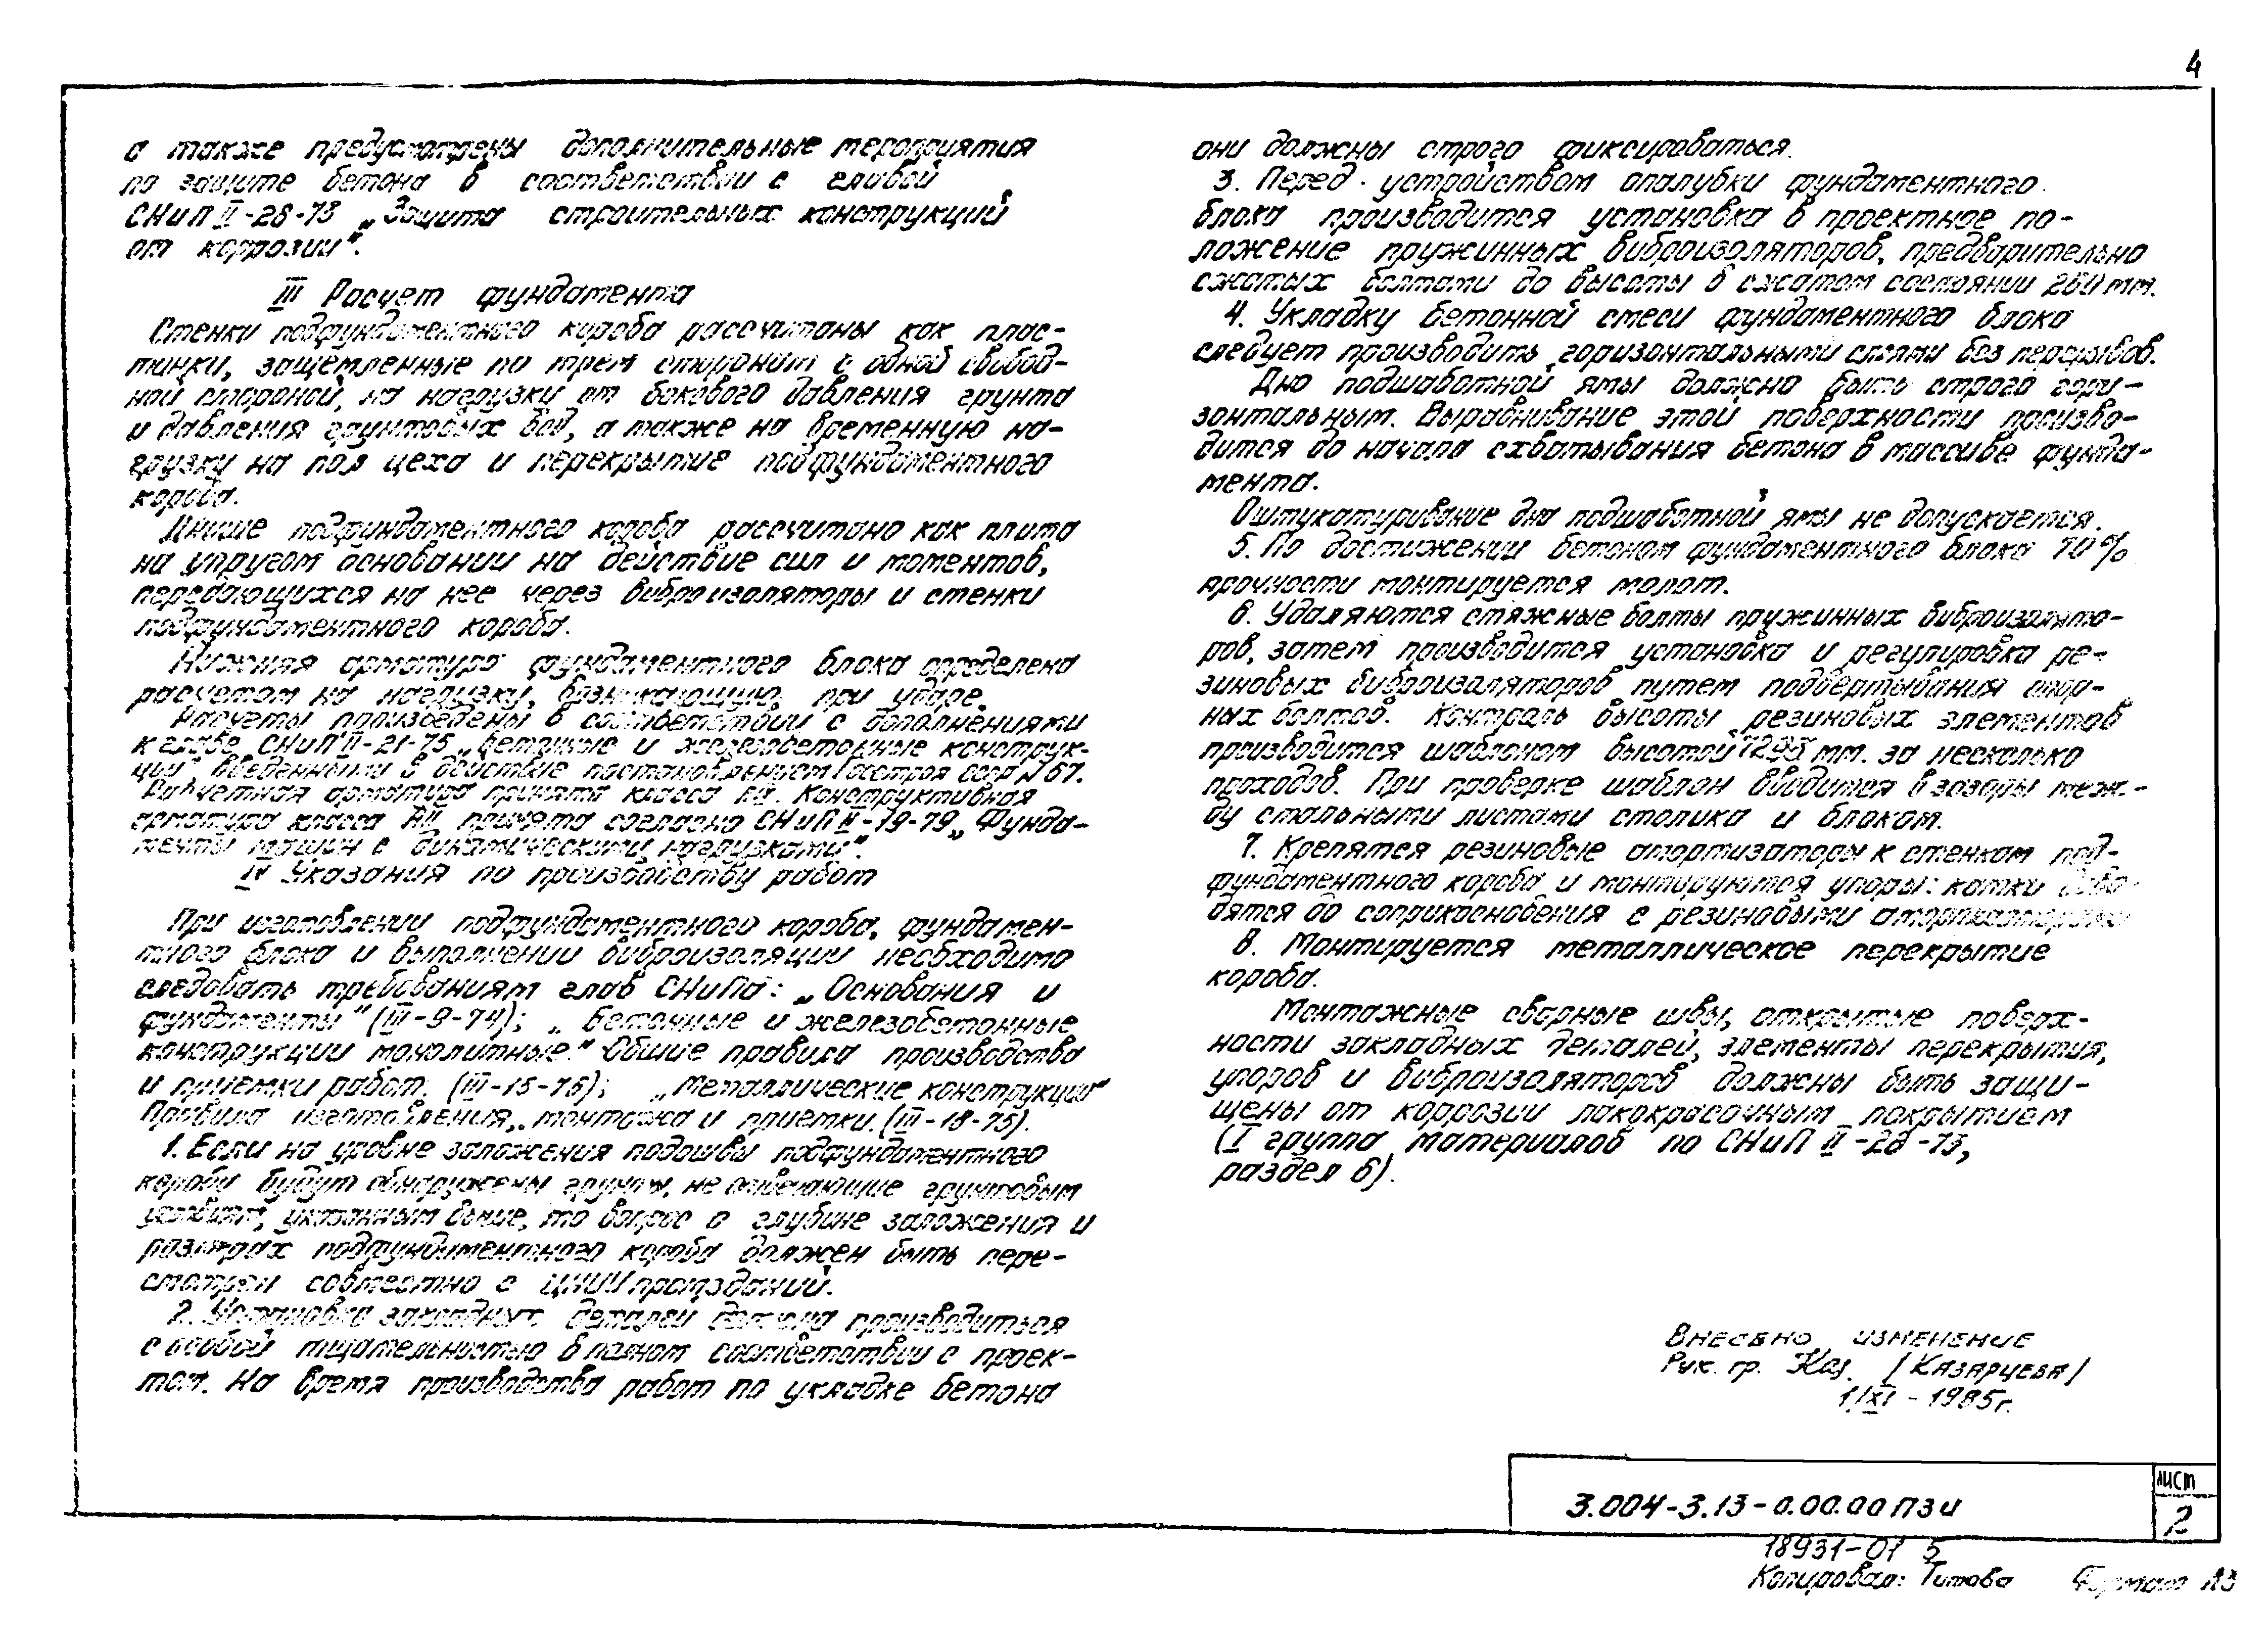 4
а также предусмотрены дополнительные мероприятия
по защите бетона в соответствии с главой
СНиП II-28-73 „Защита строительных конструкций
от коррозии".
III Расчет фундамента
Стенки подфундаментного короба рассчитаны как плас-
тинки, защемленные по трем сторонам с одной свобод-
ной стороной, на нагрузки от бокового давления грунта
и давления грунтовых вод, а также на временную на-
грузку на пол цеха и перекрытие подфундаментного
короба.
Днище подфундаментного короба рассчитано как плита
на упругом основании на действие сил и моментов,
передающихся на нее через виброизоляторы и стенки
подфундаментного короба.
Нижняя арматура фундаментного блока определена
расчетом на нагрузку, возникающую при ударе.
Расчеты произведены в соответствии с дополнениями
к главе СНиП II-21-75 „Бетонные и железобетонные конструк-
ции", введенными в действие постановлением Госстроя ссср N 67.
Расчетная арматура принята класса АIII. Конструктивная
арматура класса АII принята согласно СНиП II-19-79 „Фунда-
менты машин с динамическими нагрузками".
IV Указания по производству работ
При изготовлении подфундаментного короба, фундамен-
тного блока и выполнении виброизоляции необходимо
следовать требованиям глав СНиПа: „Основания и
фундаменты" (III-9-74); „Бетонные и железобетонные
конструкции монолитные." Общие правила производства
и приемки работ. (III-15-76); „Металлические конструкции"
Правила изготовления, монтажа и приемки. (III-18-75).
1. Если на уровне заложения подошвы подфундаментного
короба будут обнаружены грунты, не отвечающие грунтовым
условиям, указанным выше, то вопрос о глубине заложения и
размерах подфундаментного короба должен быть пере-
смотрен совместно с ЦНИИпромзданий.
2. Установка закладных деталей должна производиться
с особой тщательностью в полном соответствии с проек-
том. На время производства работ по укладке бетона
они должны строго фиксироваться.
3. Перед устройством опалубки фундаментного
блока производится установка в проектное по-
ложение пружинных виброизоляторов, предварительно
сжатых болтами до высоты в сжатом состоянии 260 мм.
4. Укладку бетонной смеси фундаментного блока
следует производить горизонтальными слоями без перерывов.
Дно подшаботной ямы должно быть строго гори-
зонтальным. Выравнивание этой поверхности произво-
дится до начала схватывания бетона в массиве фунда-
мента.
Оштукатуривание дна подшаботной ямы не допускается.
5. По достижении бетоном фундаментного блока 70%
прочности монтируется молот.
6. Удаляются стяжные болты пружинных виброизолято-
ров, затем производится установка и регулировка ре-
зиновых виброизоляторов путем подвертывания опор-
ных болтов. Контроль высоты резиновых элементов
производится шаблоном высотой мм. за несколько
проходов. При проверке шаблон вводится в зазоры меж-
ду стальными листами столика и блоком.
7. Крепятся резиновые амортизаторы к стенкам под-
фундаментного короба и монтируются упоры: катки дово-
дятся до соприкосновения с резиновыми амортизаторами
8. Монтируется металлическое перекрытие
короба.
Монтажные сварные швы, открытые поверх-
ности закладных деталей, элементы перекрытия,
упоров и виброизоляторов должны быть защи-
щены от коррозии лакокрасочным покрытием
(I группа материалов по СНиП II-28-73,
раздел 6).
Внесено изменение
Рук. гр. Каз. /Казарцева/
1/XI - 1985г.
3.004-3.13-0.00.00ПЗИ
лист
2
18931-01 5
Копировал: Титова Формат А3